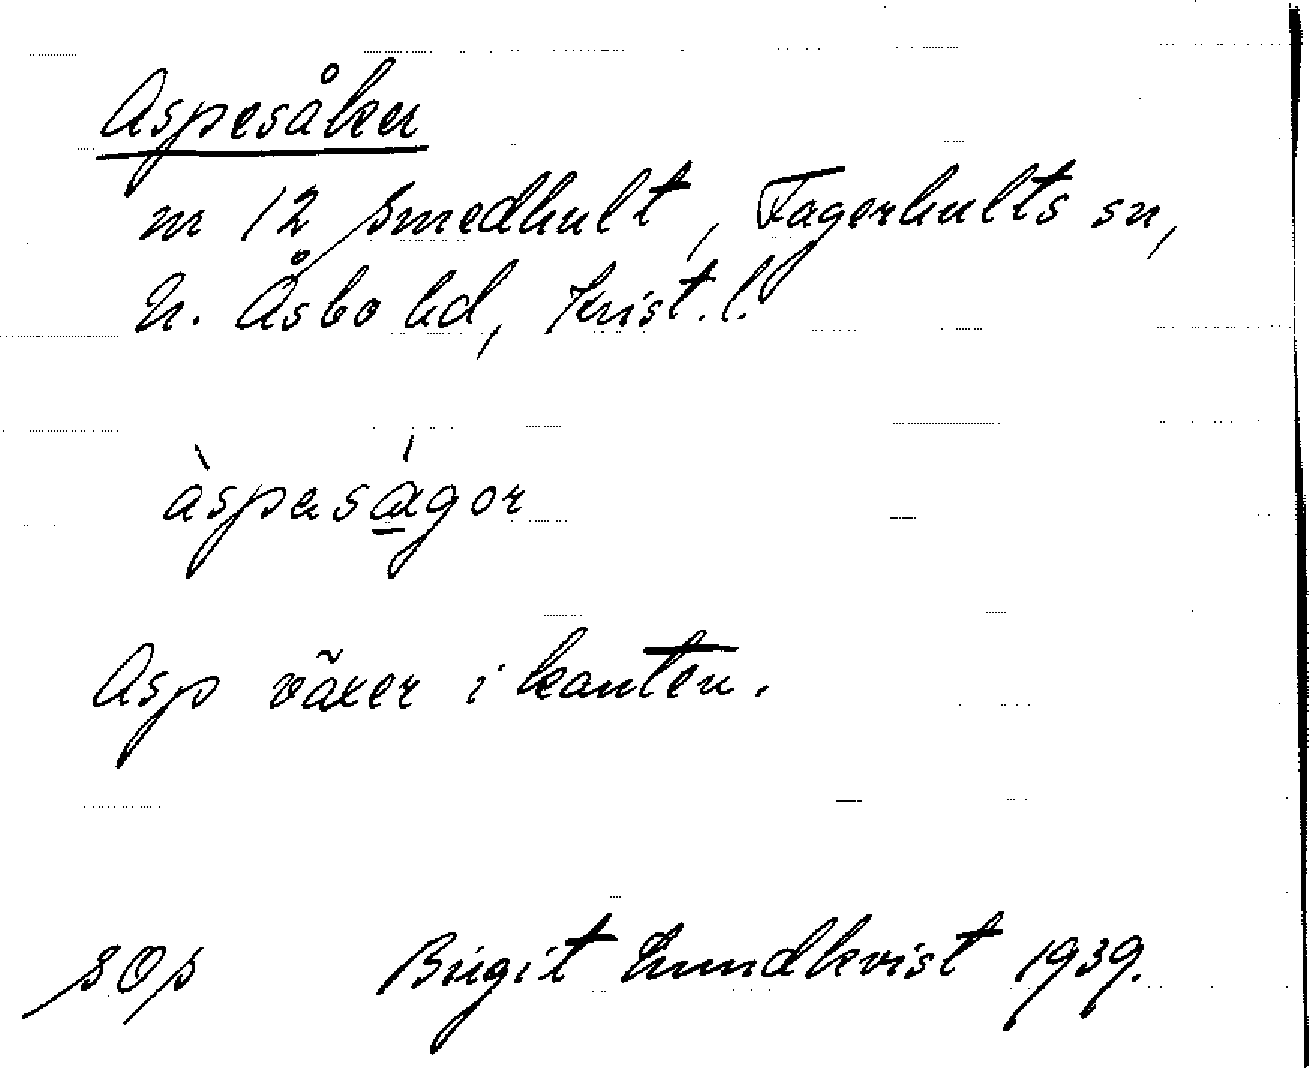 Aspesåker
m 12 Smedhult, Fagerhults sn,
N. Åsbo hd, Krist. l.
àspasá̱gor
Asp växer i kanten.
sOp Birgit Lundkvist 1939.